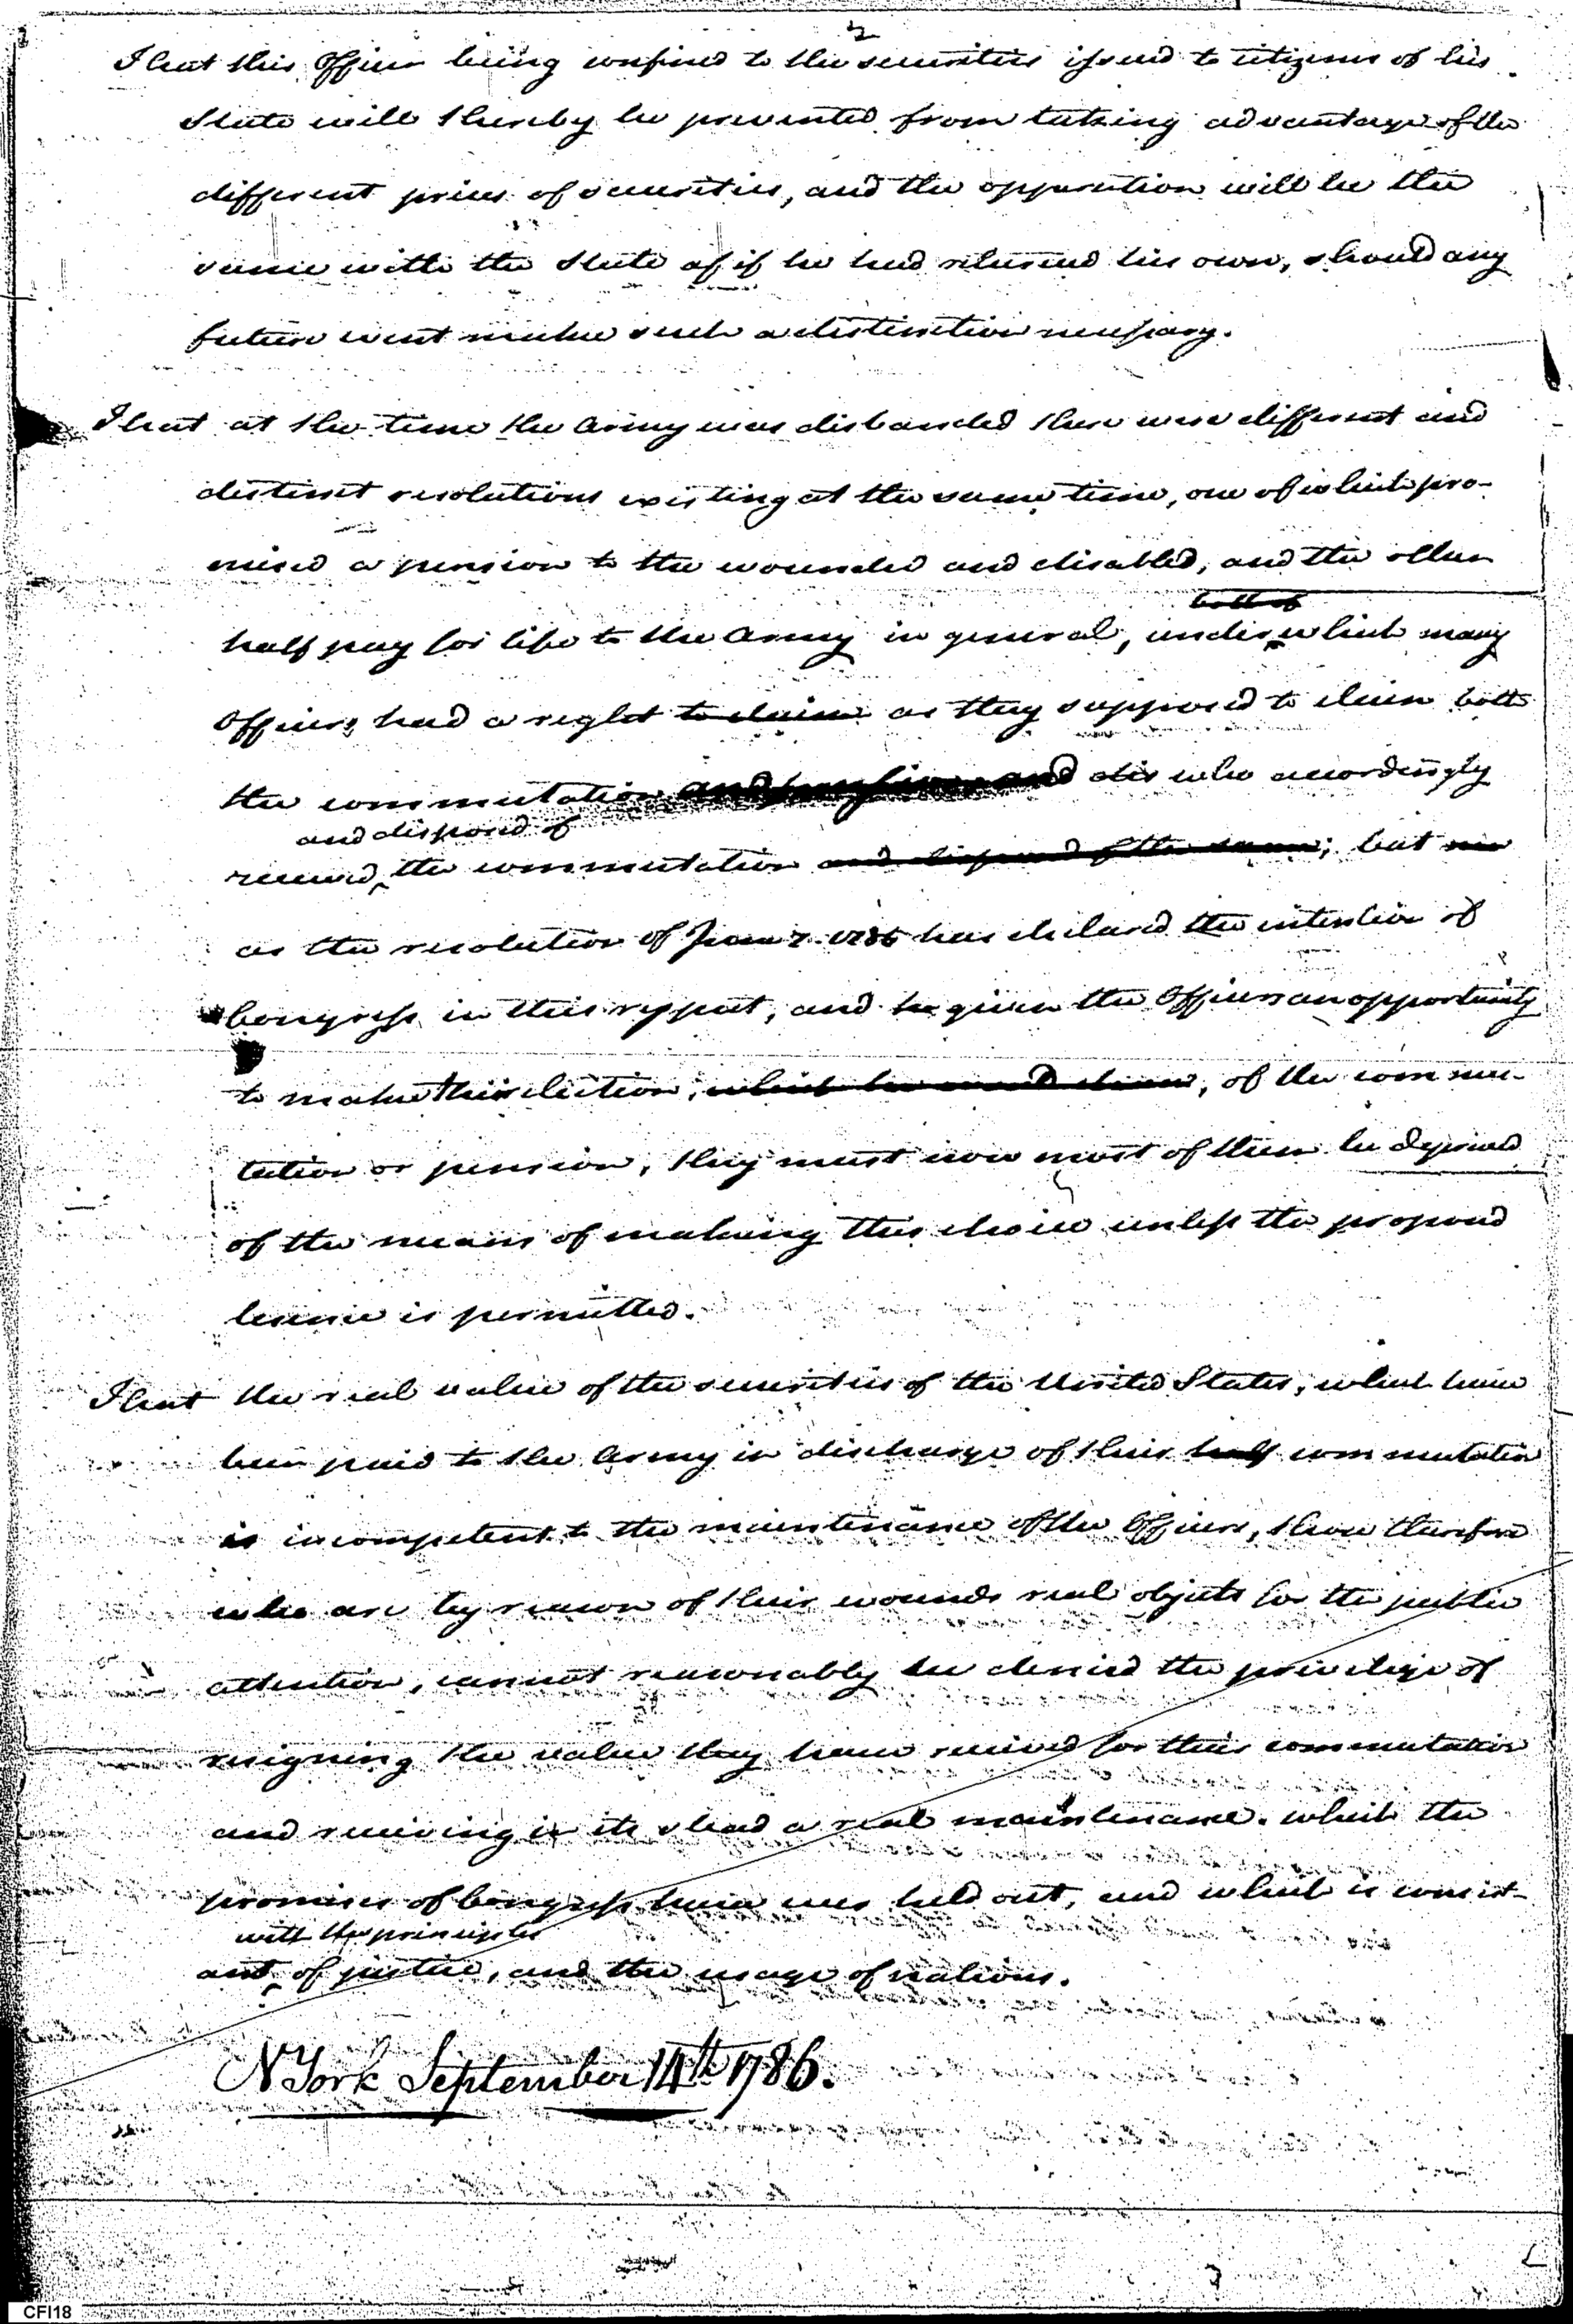 2
That this Officer being confined to the securities issued to citizens of his
State will thereby be prevented from taking advantage of the
different prices of securities, and the opperation will be the
same with the State as if he had returned his own, should any
future event make such a distinction necessary.
That at the time the Army was disbanded there were different and
distinct resolutions existing at the same time, one of which pro-
mised a pension to the wounded and disabled, and the other
both of
half pay for life to the Army in general, under which many
Officers had a right to claim as they supposed to claim both
the commutation and pension and who accordingly
and disposed of
received the commutation and disposed of the same; but
as the resolution of June 7. 1785 has declared the intention of
Congress in this respect, and given the Officers an opportunity
to make their election, of the commu-
tation or pension, they must now most of them be deprived
of the means of making this choice unless the proposed
license is permitted.
That the real value of the securities of the United States, which have
been paid to the Army in discharge of their half commutation
is incompetent to the maintenance of the Officers, those therefore
who are by reason of their wounds real objects for the public
attention, cannot reasonably be denied the privilege of
resigning the value they have received for their commutation
and receiving in its stead a real maintenance. which the
promises of Congress have ever held out, and which is consist-
with the principles
ant of justice, and the usage of nations.
N York September 14th 1786.
CFI18